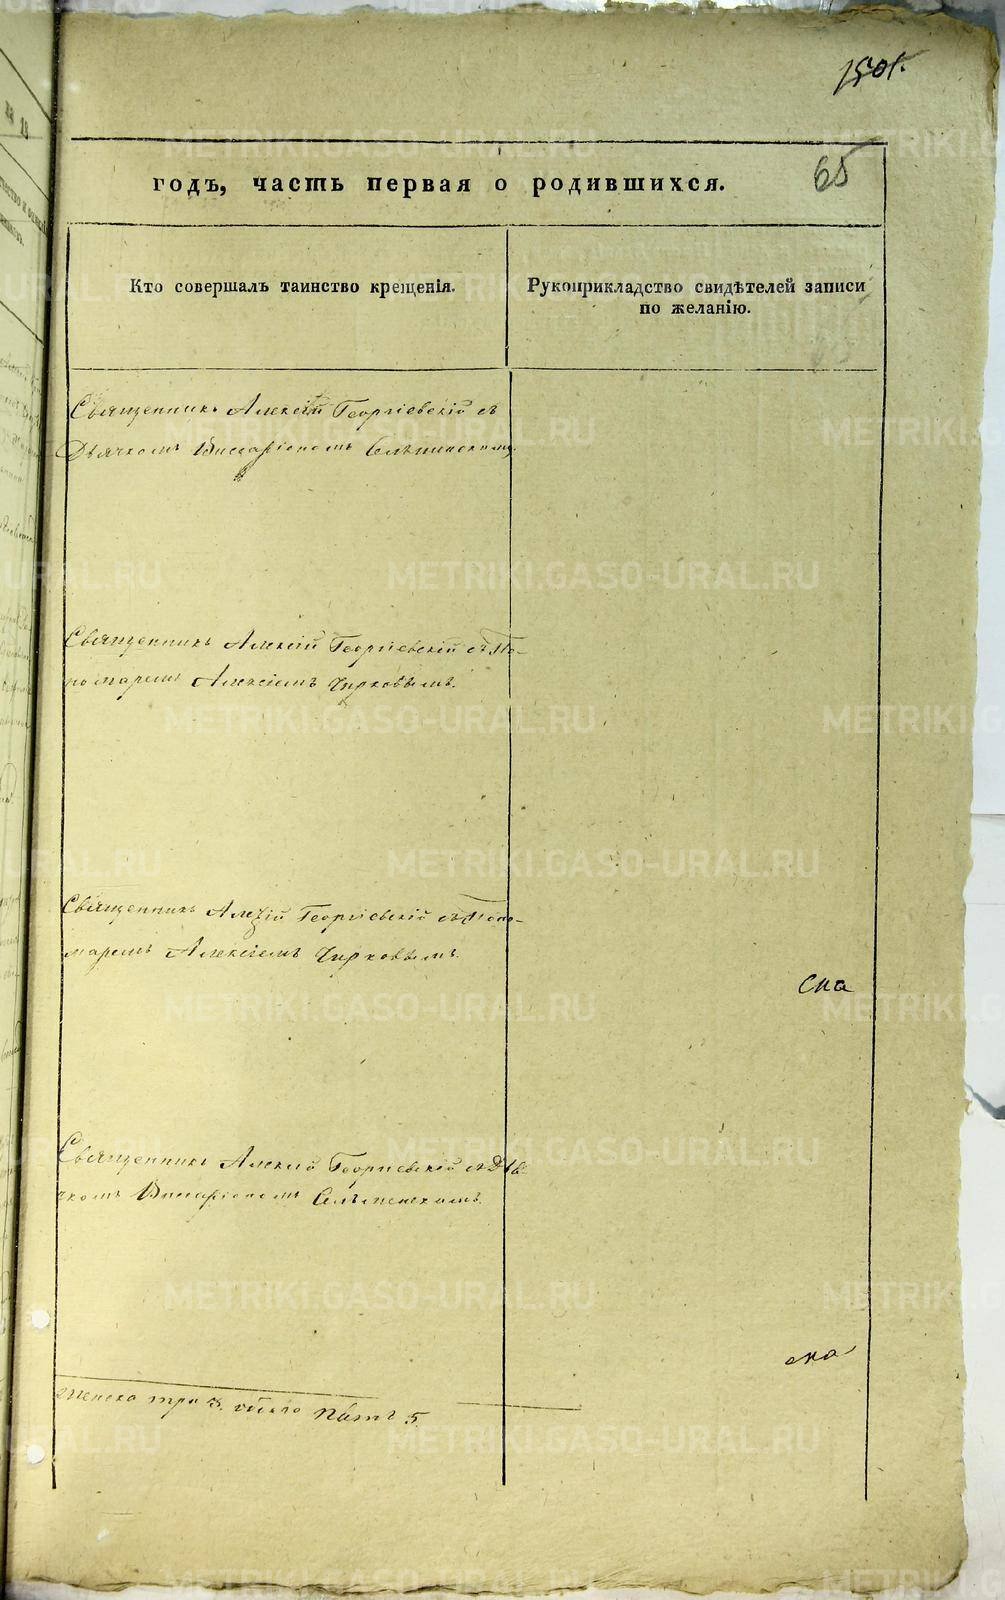 65
годъ, часть первая о родившихся.
Кто совершалъ таинство крещенія.
Рукоприкладство свидѣтелей записи
по желанію.
Священникъ Алексій Георгіевскій съ
Дьячкомъ Виссаріономъ
Священникъ Алексій Георгіевскій съ По-
номаремъ Алексіемъ Чирковымъ.
Священникъ Алексій Георгіевскій съ Поно-
маремъ Алексіемъ Чирковымъ.
Священникъ Алексій Георгіевскій съ Дья-
чкомъ Виссаріономъ
женска три 3. обоего пять 5.
METRIKI.GASO-URAL.RU